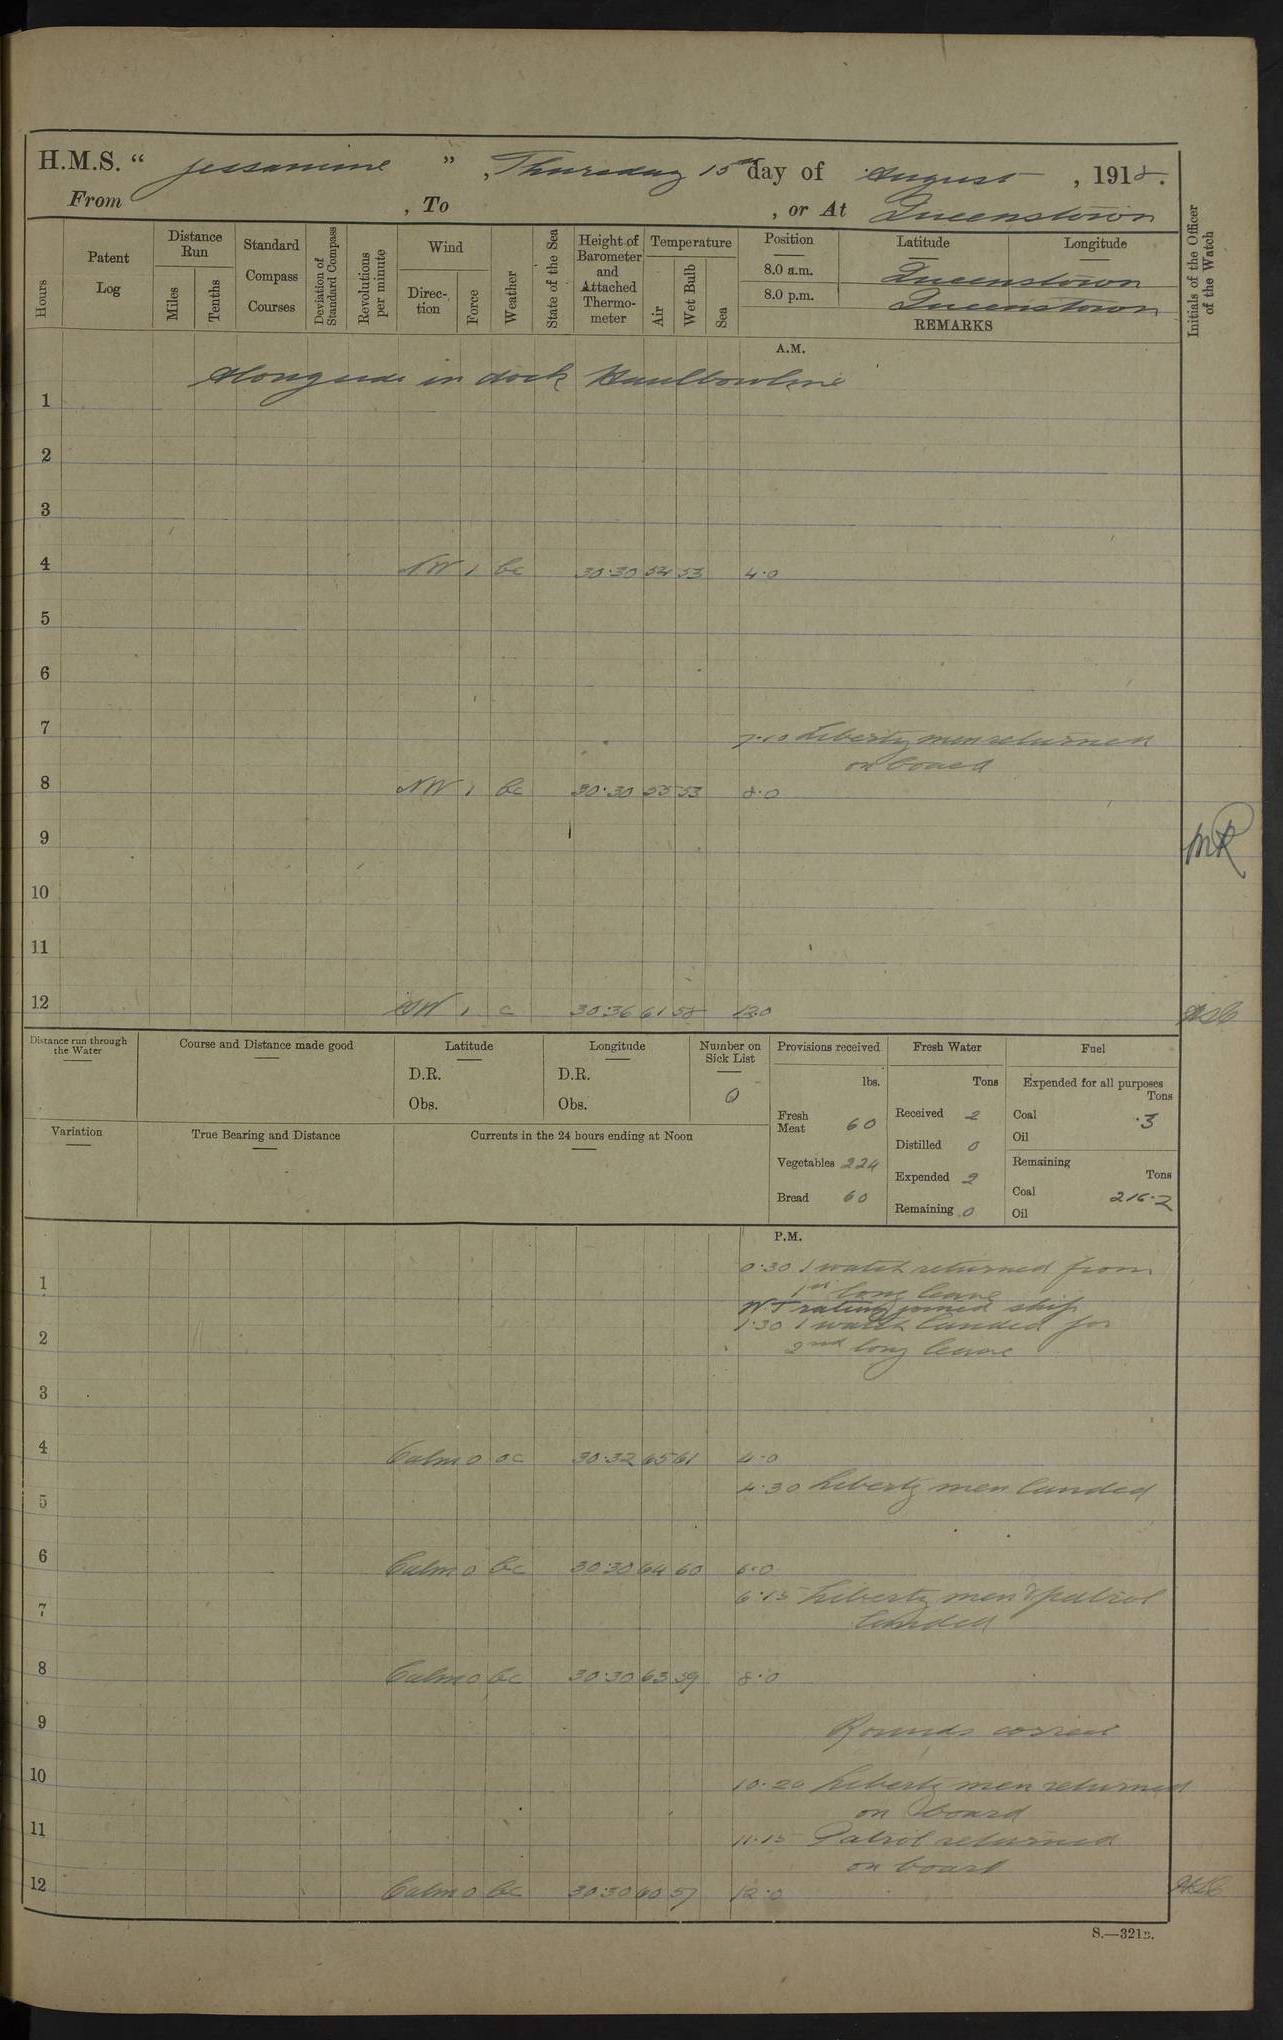 H.M.S. “ Jessamine ” , Thursday 15th day of August , 1918.
From , To , or At Queenstown
Hours
Patent Log
Distance Run
Miles
Tenths
Standard Compass Courses
Deviation of Standard Compass
Revolutions per minute
Wind
Direc-tion
Force
Weather
State of the Sea
Height of Barometer and Attached Thermo-meter
Temperature
Air
Wet Bulb
Sea
Position Latitude Longitude
8.0 a.m. Queenstown
8.0 p.m. Queenstown
REMARKS
Initials of the Officer of the Watch
A.M.
Alongside in dock Haulbowline
1
2
3
4 NW 1 bc 30.30 54 53 4.0
5
6
7 7.10 Liberty men returned
on board
8 NW 1 bc 30.30 55 53 8.0
9 MR
10
11
12 NW 1 c 30.36 61 58 12.0
Distance run through the Water
Course and Distance made good
Latitude
D.R.
Obs.
Longitude
D.R.
Obs.
Number on Sick List
0
Provisions received
lbs.
Fresh Meat 60
Vegetables 224
Bread 60
Fresh Water
Tons
Received 2
Distilled 0
Expended 2
Remaining 0
Fuel
Expended for all purposes
Tons
Coal .3
Oil
Remaining
Tons
Coal 216.2
Oil
Variation
True Bearing and Distance
Currents in the 24 hours ending at Noon
P.M.
0.30 1 watch returned from
1
1st long leave
W.T rating joined ship
1.30 1 watch landed for
2
2nd long leave
3
4 Calm 0 oc 30.32 65 61 4.0
4.30 Liberty men landed
5
6 Calm 0 bc 30.30 64 60 6.0
6.15 Liberty men & patrol
7
landed
8 Calm 0 bc 30.30 63 59 8.0
9 Rounds correct
10 10.20 Liberty men returned
on board
11 11.15 Patrol returned
on board
12 Calm 0 bc 30.30 60 57 12.0
S.—321B.